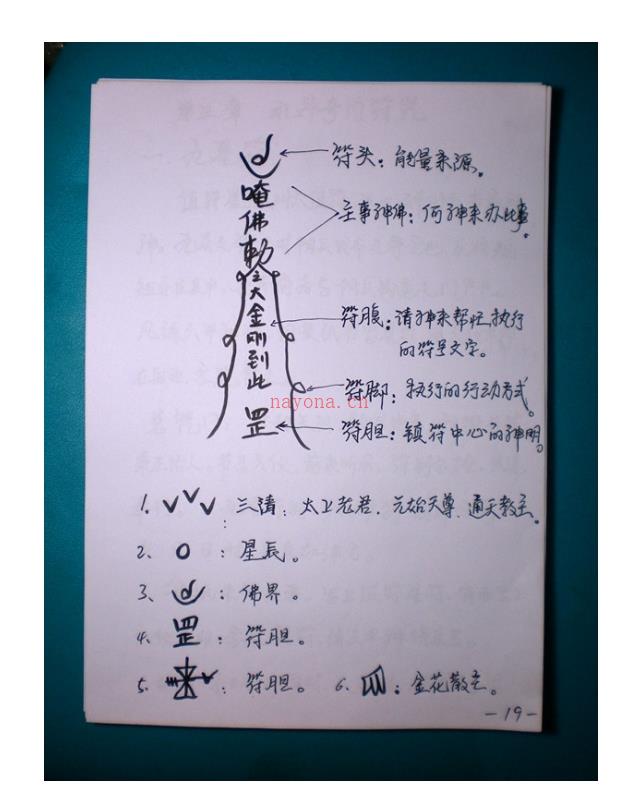 符头：能量来源。
唵佛勅
主事神佛：何神来办此事。
之大金刚到此
符腹：请神来帮忙执行
的符号文字。
符脚：执行的行动方式。
nayona.cn
罡
符胆：镇符中心的神明。
1. 三清：太上老君、元始天尊、通天教主。
2、：星辰。
3、：佛界。
4、罡：符胆。
5、：符胆。 6、：金花教主。
-19-